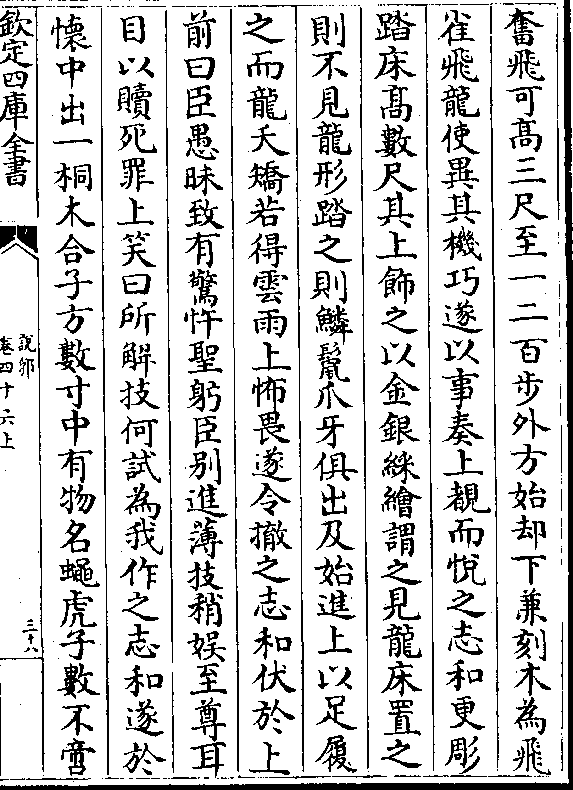 奮飛可髙三尺至一二百步外方始却下兼刻木為飛
雀飛龍使異其機巧遂以事奏上覩而悅之志和更彫
踏床髙數尺其上飾之以金銀綵繪謂之見龍床置之
則不見龍形踏之則鱗鬣爪牙俱出及始進上以足履
之而龍夭矯若得雲雨上怖畏遂令撤之志和伏於上
前曰臣愚昧致有驚忤聖躬臣别進薄技稍娱至尊耳
目以贖死罪上笑曰所解技何試為我作之志和遂於
懐中出一桐木合子方數寸中有物名蠅虎子數不啻
欽定四庫全書
說郛
卷四十六上
三十八